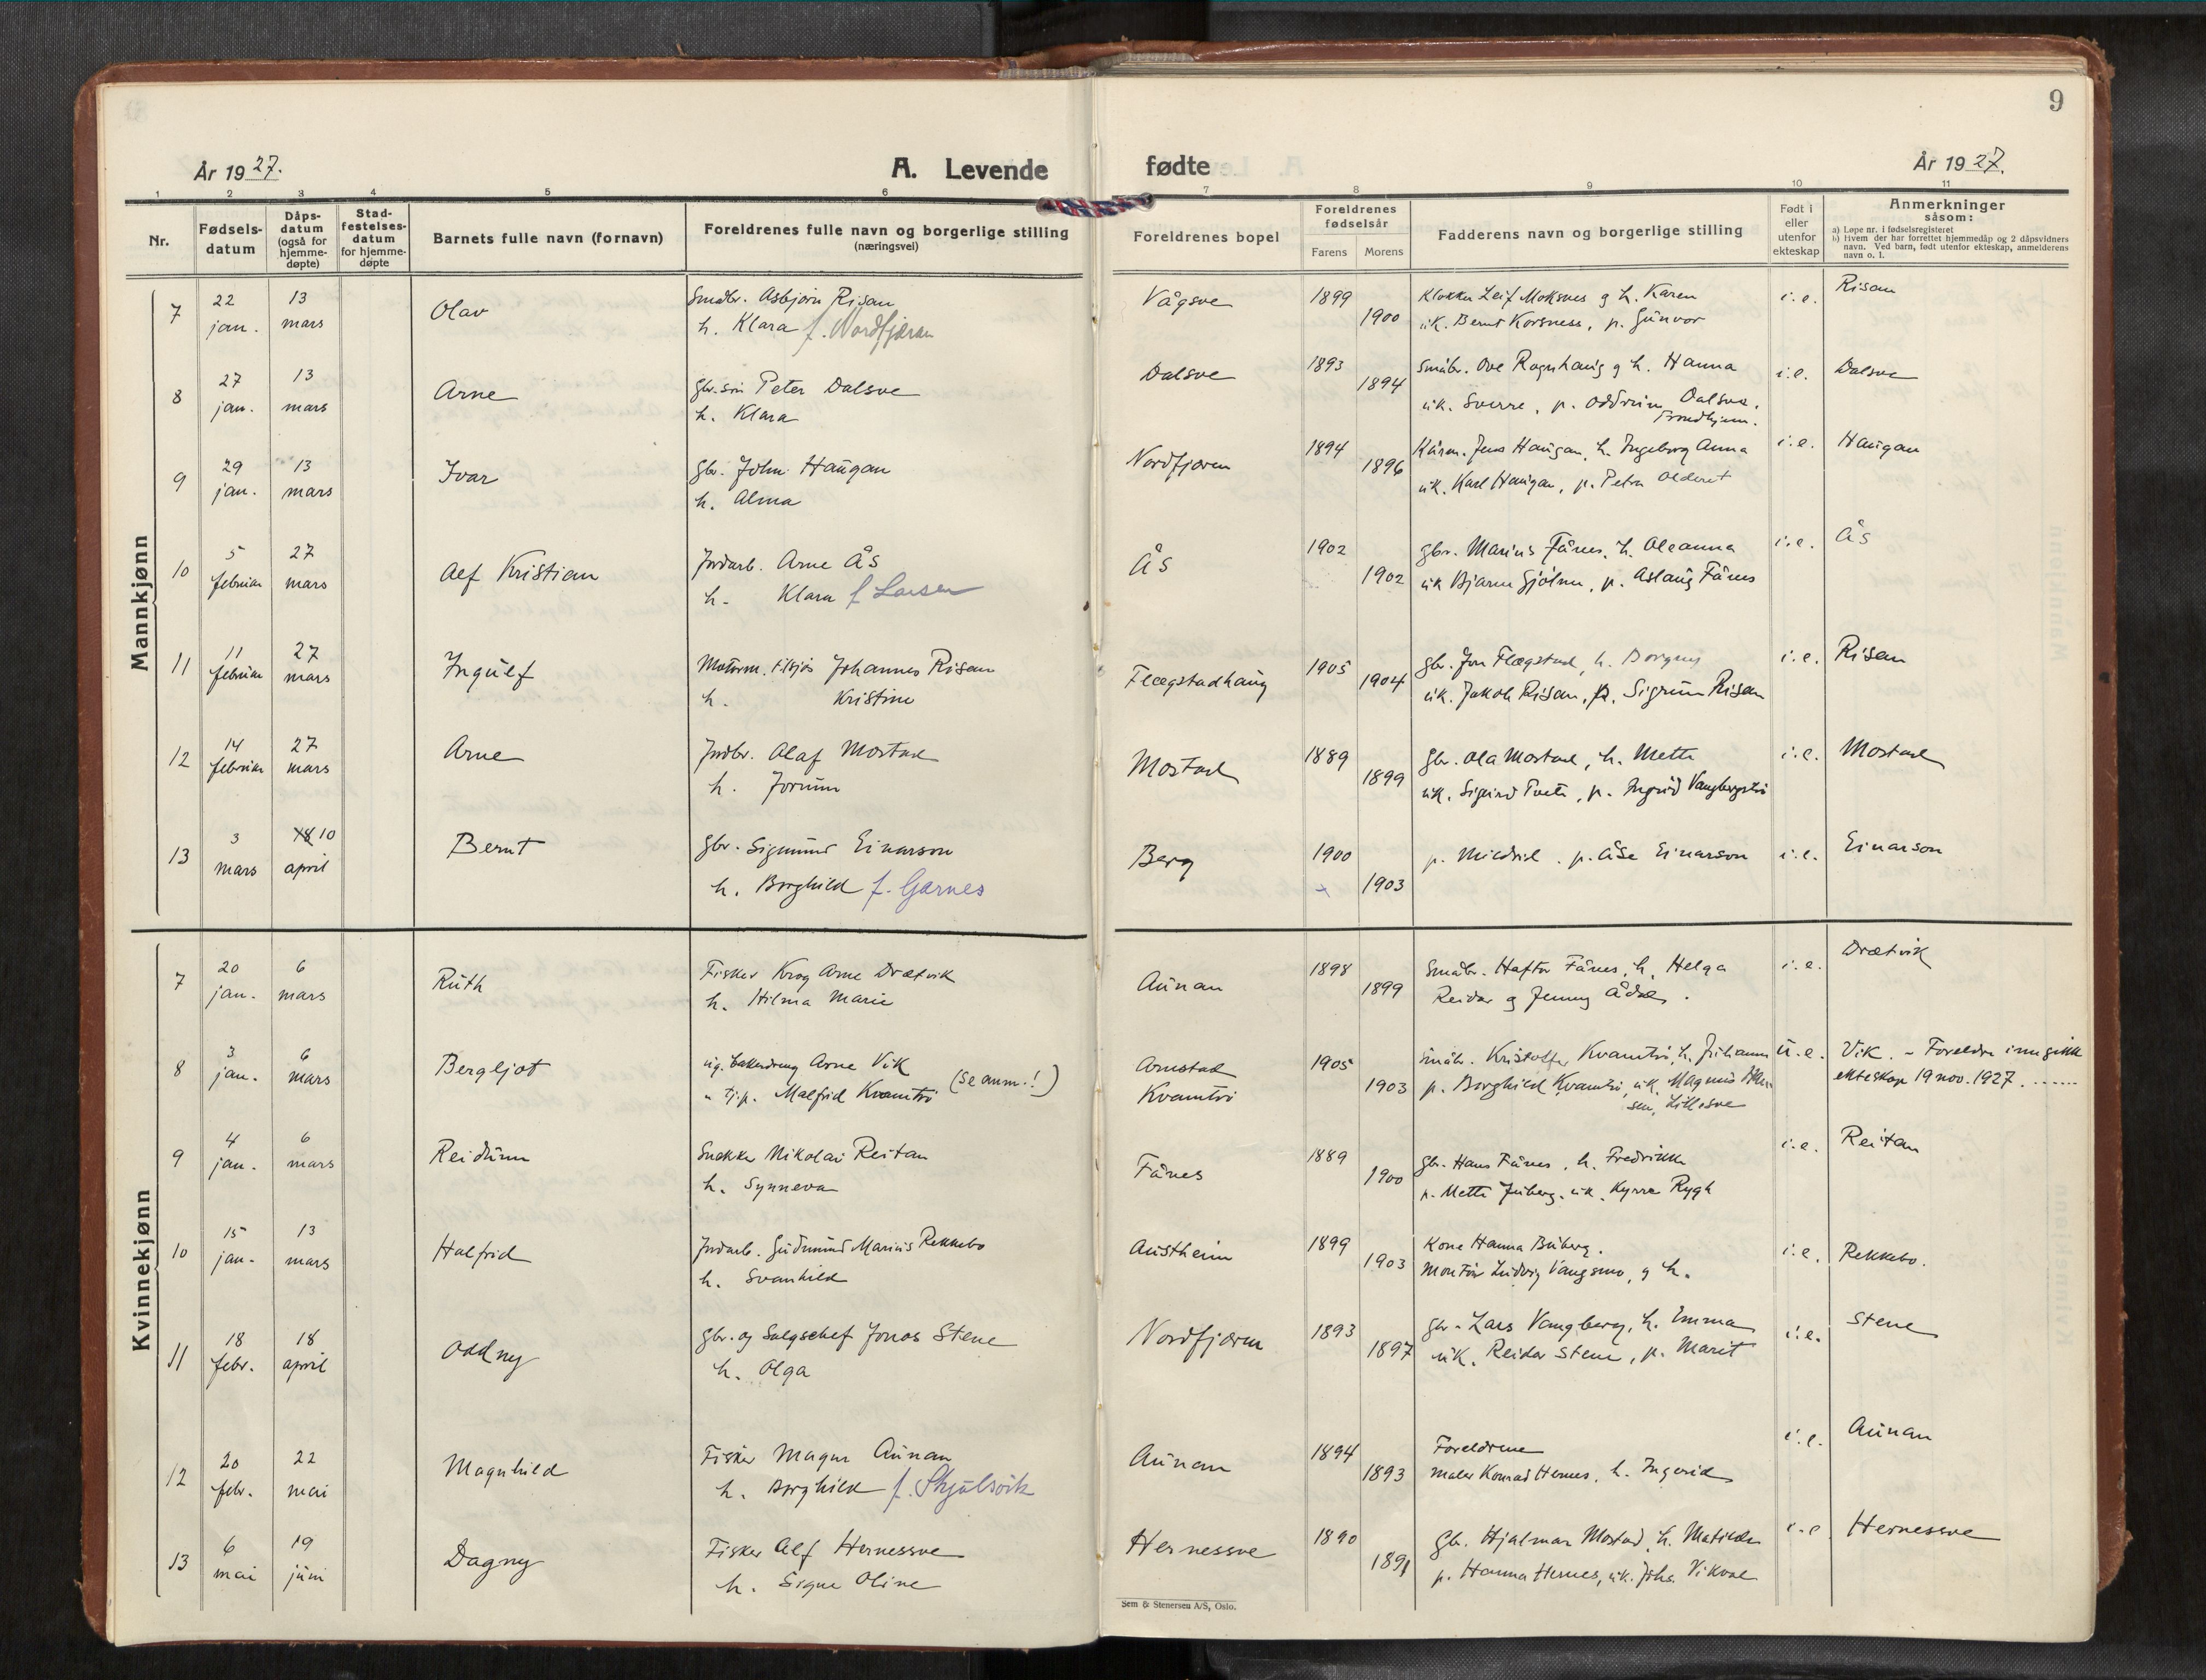 9
År 1927.
A. Levende
fødte
År 1927.
1 2 3 4 5 6 7 8 9 10 11
Nr.
Fødsels-
datum
Dåps-
datum
(også for
hjemme-
døpte)
Stad-
festelses-
datum
for hjemme-
døpte
Barnets fulle navn (fornavn)
Foreldrenes fulle navn og borgerlige stilling
(næringsvei)
Foreldrenes bopel
Foreldrenes
fødselsår
Farens Morens
Fadderens navn og borgerlige stilling
Født i
eller
utenfor
ekteskap
Anmerkninger
såsom:
a) Løpe nr. i fødselsregisteret
b) Hvem der har forrettet hjemmedåp og 2 dåpsvidners
navn. Ved barn, født utenfor ekteskap, anmelderens
navn o. l.
Mannkjønn
7 22 13 Olav Småbr. Asbjørn Risan Vågsve 1899 Klokker Leif Moksnes g h. Karen i.e. Risan
jan. mars h. Klara f. Nordfjæran 1900 uk. Bernt Korsness, p. Gunvor
8 27 13 Arne gbr.søn Peter Dalsve Dalsve 1893 Småbr. Ove Ragnhaug g h. Hanna i.e. Dalsve
jan. mars h. Klara 1894 uk. Sverre, p. Oddrun Dalsve.
Trondhjem.
9 29 13 Ivar gbr. John Haugan Nordfjæren 1894 Jens Haugan, h. Ingeborg Anna i.e. Haugan
jan. mars h. Alma 1896 uk. Karl Haugan, p. Petra
10 5 27 Alf Kristian Indarb. Arne Ås Ås 1902 gbr. Marius Fånes, h. Oleanna i.e. Ås
februar mars h. Klara f Larsen 1902 uk Bjarne Gjølme, p. Aslaug Fånes
11 11 27 Ingulf Motorm. tilsjøs Johannes Risan Flægstadhaug 1905 gbr. Jon Flægstad, h. Borgny i.e. Risan
februar mars h. Kristine 1904 uk. Jakob Risan, p. Sigrun Risan
12 14 27 Arne Indbr. Olaf Mostad Mostad 1889 gbr. Ola Mostad, h. Mette i.e. Mostad
februar mars h. Jorunn 1899 uk. Sigurd Tveti, p. Ingrid
13 3 18 10 Bernt gbr. Sigmund Einarson Berg 1900 p. Mildrid. p. Åse Einarson i.e. Einarson
mars april h. Borghild f. Garnes 1903
Kvinnekjønn
7 20 6 Ruth Fisker Krog Arne Drætvik Aunan 1898 Småbr. Haftor Fånes, h. Helga i.e. Drætvik
jan. mars h. Hilma Marie 1899 Reidar g Jenny Ådal.
8 3 6 Bergljot ug. bakerdreng Arne Vik Arnstad 1905 Småbr. Kristoffer Kvamtrø, h. Johanna u.e. Vik. - Foreldre inngikk
jan. mars " tj.p. Malfrid Kvamtrø (se anm.!) Kvamtrø 1903 p. Borghild Kvamtrø, uk. Magnus ekteskap 19 nov. 1927.
sen, Lillesve
9 4 6 Reidunn Snekker Nikolai Reitan Fånes 1889 gbr. Hans Fånes, h. Fredrikke i.e. Reitan
jan. mars h. Synneva 1900 p. Mette Juberg. uk. Kyrre Rygh
10 15 13 Halfrid Indarb. Gudmund Marius Rekkebo Austheim 1899 Kone Hanna Buberg. i.e. Rekkebo.
jan. mars h. Svanhild 1903 Montør Ludvig Vangsmo, g h.
11 18 18 Oddny gbr. og Salgschef Jonas Stene Nordfjæren 1893 gbr. Lars Vangberg, h. Emma i.e. Stene
febr. april h. Olga 1897 uk. Reidar Stene, p. Marit
12 20 22 Magnhild Fisker Magnus Aunan Aunan 1894 Foreldrene i.e. Aunan
febr. mai h. Borghild f. Skjølsvik 1893 maler Konrad Hernes, h. Ingerid
13 6 19 Dagny Fisker Alf Hernessve Hernessve 1890 gbr. Hjalmar Mostad, h. Matilde i.e Hernessve
mai juni h. Signe Oline 1891 p. Hanna Hernes, uk. Johs. Vikvol
Sem & Stenersen A/S, Oslo.